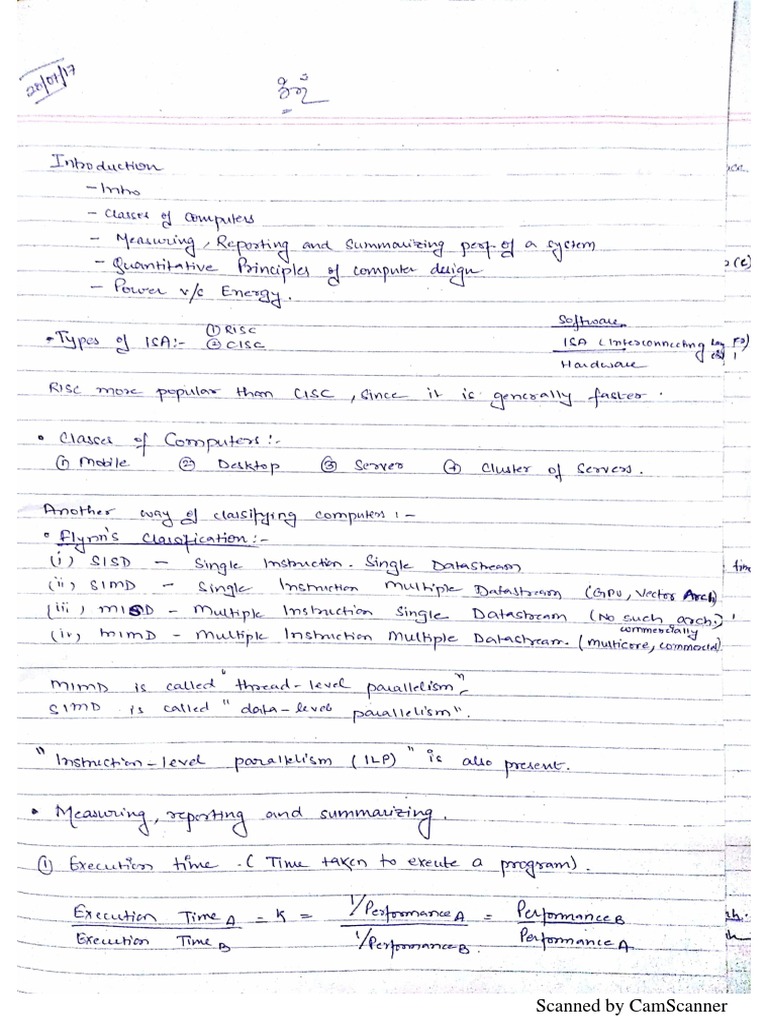 20/07/17
Introduction
- Intro
- Classes of Computers
- Measuring, Reporting and Summarizing perf. of a system
- Quantitative Principles of computer design
- Power v/s Energy.
• Types of ISA:- ① RISC
② CISC
Software
ISA (Interconnecting
Hardware
RISC more popular than CISC, since it is generally faster.
• Classes of Computers:-
① Mobile ② Desktop ③ Server ④ Cluster of Servers.
Another way of classifying computers:-
• Flynn's Classification:-
(i) SISD - Single Instruction. Single Datastream
(ii) SIMD - Single Instruction Multiple Datastream (GPU, Vector Arch)
(iii) MISD - Multiple Instruction Single Datastream (No such arch.)
commercially
(iv) MIMD - Multiple Instruction Multiple Datastream. (multicore, commercial)
MIMD is called "thread-level parallelism"
SIMD is called "data-level parallelism".
"Instruction-level parallelism (ILP)" is also present.
• Measuring, reporting and summarizing.
① Execution time. (Time taken to exeute a program).
Execution Time A / Execution Time B = K = 1/Performance A / 1/Performance B. = Performance B / Performance A
Scanned by CamScanner